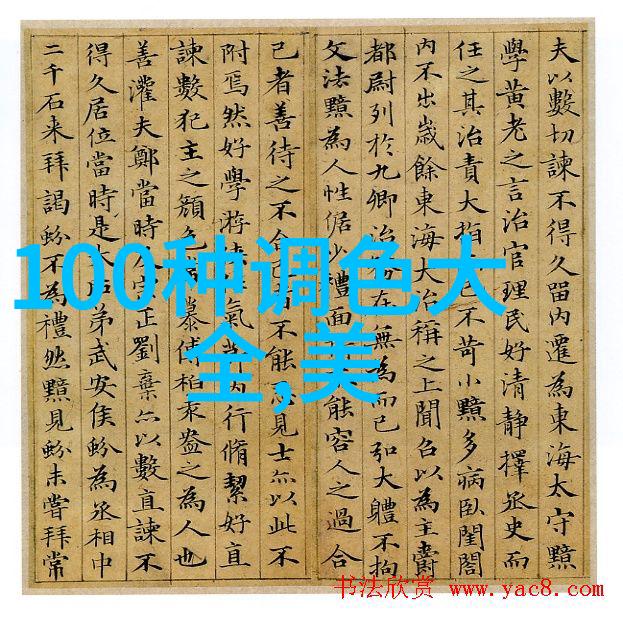 夫以數切諫不得久留內遷為東海太守黯
學黃老之言治官理民好清靜擇丞史而
任之其治責大指已不苛小黯多病臥閨閤
內不出歲餘東海大治稱之上聞召以為主爵
都尉列於九卿治務在無為而已弘大體不拘
文法黯為人性倨少禮面能容人之過合
己者善待之不合己者不能見士亦以此不
附焉然好學游氣內行脩絜好直
諫數犯主之顏色慕傅柏袁盎之為人也
善灌夫鄭當時宗正劉棄亦以數直諫不
得久居位當時是太后弟武安侯蚡為丞相中
二千石来拜謁蚡不為禮然黯見蚡未嘗拜常
100种调色大
全,美
书法欣赏 www.yac8.com